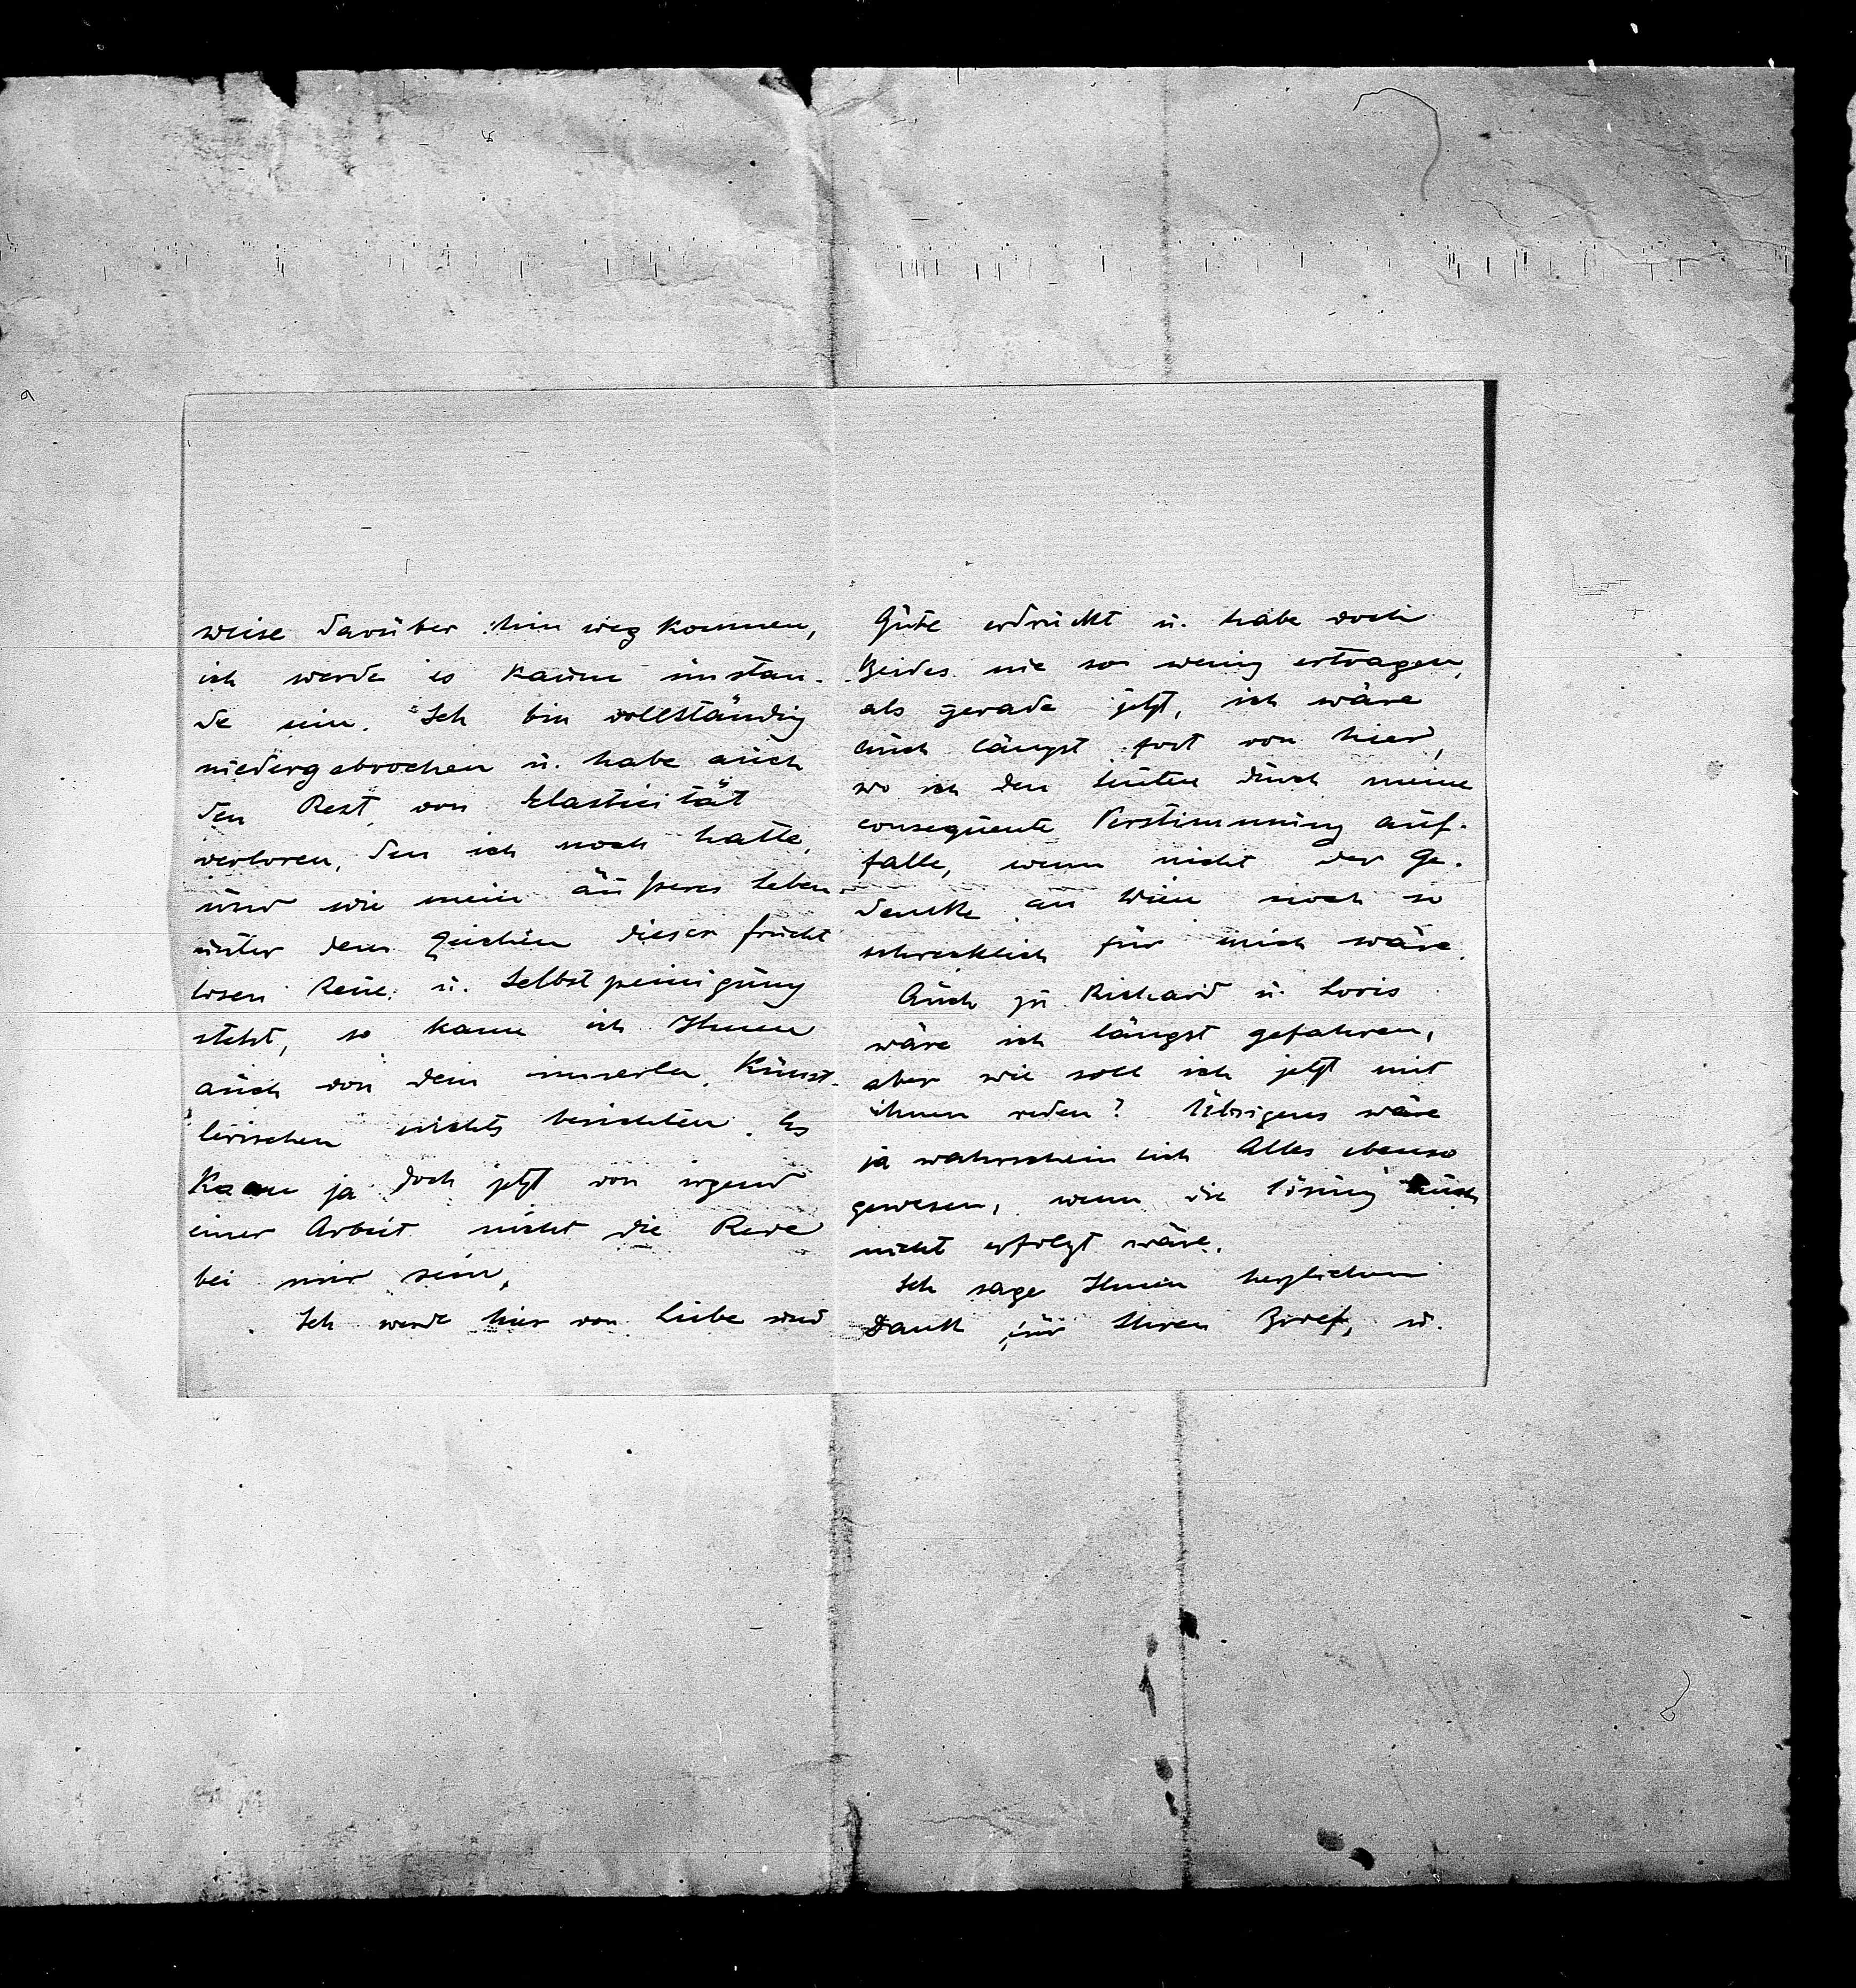 weise darüber hin weg kommen,
ich werde es kaum imstan-
de sein. Ich bin vollständig
niedergebrochen u. habe auch
den Rest von Elasticität
verloren, den ich noch hatte,
und wie mein äußeres Leben
unter dem Zeichen dieser frucht
losen Reue u. Selbstpeinigung
steht, so kann ich Ihnen
auch von dem innerlen, Künst-
lerischen nichts berichten. Es
kann ja doch jetzt von irgend
einer Arbeit nicht die Rede
bei mir sein.
Ich werde hier von Liebe und
Güte erdrückt u. habe doch
Beides nie so wenig ertragen,
als gerade jetzt, ich wäre
auch längst fort von hier,
wo ich den Leuten durch meine
consequente Verstimmung auf-
falle, wenn nicht der Ge-
danke an Wien noch so
schrecklich für mich wäre.
Auch zu Richard u. Loris
wäre ich längst gefahren,
aber wie soll ich jetzt mit
ihnen reden? Übrigens wäre
ja wahrscheinlich Alles ebenso
gewesen, wenn die Lösung auch
nicht erfolgt wäre.
Ich sage Ihnen herzlichen
Dank für Ihren Brief, u.